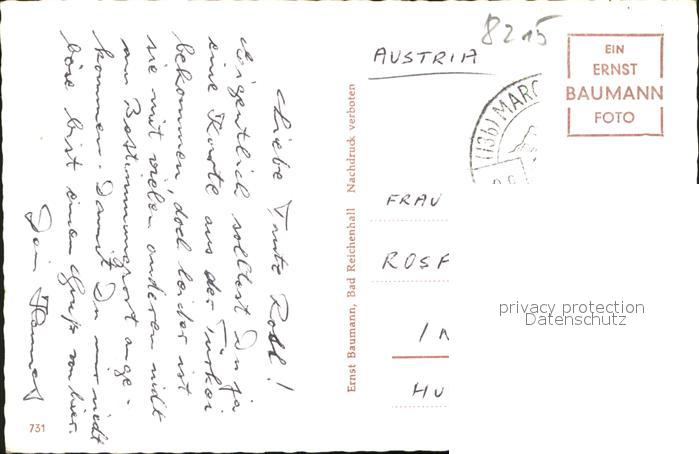 Liebe Tante Rosl!
Eigentlich solltest Du ja
eine Karte aus der Türkei
bekommen, doch leider ist
sie mit vielen anderen nicht
am Bestimmungsort ange-
kommen. Damit Du mir nicht
böse bist einen Gruß von hier.
Dein Hannes
731
Ernst Baumann, Bad Reichenhall Nachdruck verboten
8215
AUSTRIA
EIN
ERNST
BAUMANN
FOTO
(13b) MARQ
FRAU
ROSF
IN
HU
privacy protection
Datenschutz